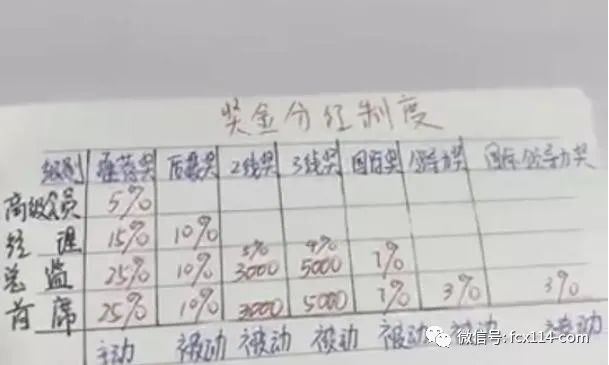 奖金分红制度
级别 推荐奖 质量奖 2线奖 3线奖 国百奖 领导力奖 国际领导力奖
高级会员 5%
经理 15% 10%
5% 4%
总监 25% 10% 3000 5000 1%
首席 25% 10% 3000 5000 1% 3% 3%
主动 被动 被动 被动 被动 被动 被动
微信号: fcx114-com